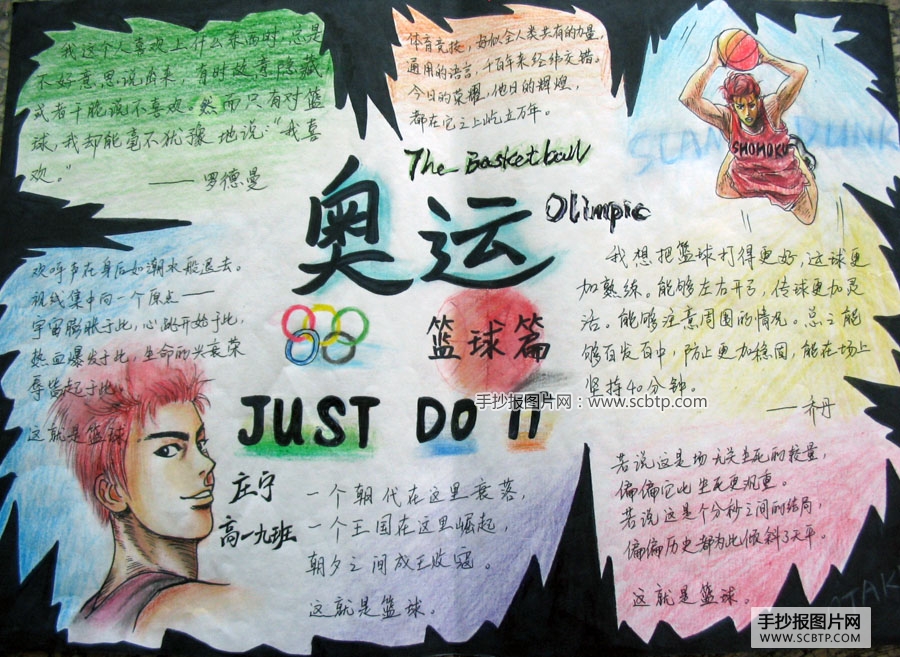 我这个人喜欢上什么东西时,总是
不好意思说出来,有时故意隐藏
或者干脆说不喜欢。然而只有对篮
球,我却能毫不犹豫地说:“我喜
欢。”
——罗德曼
体育竞技,好似全人类共有的力量,
通用的语言,千百年来经纬交错。
今日的荣耀,他日的辉煌,
都在它之上屹立万年。
SLAM DUNK
SHOHOKU
The Basketball
Olimpic
奥运
篮球篇
欢呼声在身后如潮水般退去。
视线集中向一个原点——
宇宙膨胀于此,心跳开始于此,
热血爆发于此,生命的兴衰荣
辱皆起于此。
这就是篮球
我想把篮球打得更好,运球更
加熟练。能够左右开弓,传球更加灵
活。能够注意周围的情况。总之能
够百发百中,防止更加稳固,能在场上
坚持40分钟。
——乔丹
JUST DO IT
手抄报图片网:www.scbtp.com
庄宁
高一九班
一个朝代在这里衰落,
一个王国在这里崛起,
朝夕之间成王败寇。
这就是篮球。
若说这是场无关生死的较量,
偏偏它比生死更沉重。
若说这是个分秒之间的结局,
偏偏历史都为此倾斜了天平。
这就是篮球。
手抄报图片网
WWW.SCBTP.COM